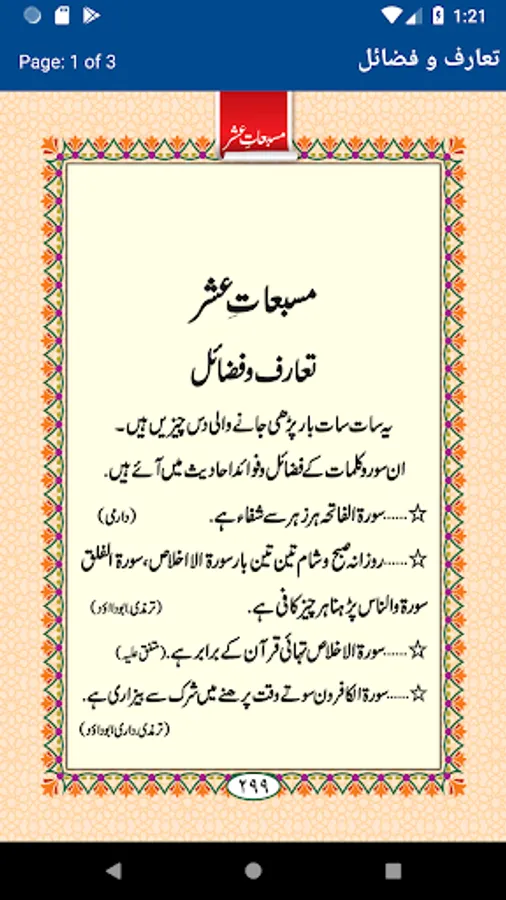 1:21
تعارف و فضائل
Page: 1 of 3
مسبعاتِ عشر
مسبعاتِ عشر
تعارف و فضائل
یہ سات سات بار پڑھی جانے والی دس چیزیں ہیں۔
ان سور و کلمات کے فضائل و فوائد احادیث میں آئے ہیں۔
☆.....سورۃ الفاتحہ ہر زہر سے شفاء ہے۔ (دارمی)
☆.....روزانہ صبح و شام تین تین بار سورۃ الاخلاص، سورۃ الفلق
سورۃ والناس پڑہنا ہر چیز کافی ہے۔ (ترمذی، ابوداؤد)
☆.....سورۃ الاخلاص تہائی قرآن کے برابر ہے۔ (متفق علیہ)
☆.....سورۃ الکافرون سوتے وقت پرھنے میں شرک سے بیزاری ہے۔
(ترمذی، دارمی، ابوداؤد)
۲۹۹